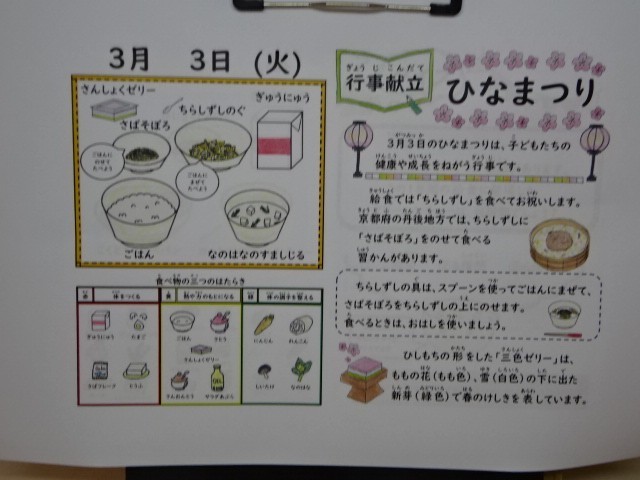 3月 3日 (火)
さんしょくゼリー
ちらしずしのぐ
ぎゅうにゅう
さばそぼろ
ごはんに
のせて
たべよう
ごはんに
まぜて
たべよう
ごはん
なのはなのすましじる
食べ物の三つのはたらき
赤 体をつくる
黄 熱や力のもとになる
緑 体の調子を整える
ぎゅうにゅう
たまご
ごはん
さとう
にんじん
れんこん
さんしょくゼリー
さばフレーク
とうふ
でんぷん
なたねあぶら
しいたけ
なのはな
ぎょうじこんだて
行事献立
ひなまつり
3月3日のひなまつりは、子どもたちの
健康や成長をねがう行事です。
給食では「ちらしずし」を食べてお祝いします。
京都府の丹後地方では、ちらしずしに
「さばそぼろ」をのせて食べる
習かんがあります。
ちらしずしの具は、スプーンを使ってごはんにまぜて、
さばそぼろをちらしずしの上にのせます。
食べるときは、おはしを使いましょう。
ひしもちの形をした「三色ゼリー」は、
ももの花(もも色)、雪(白色)の下に出た
新芽(緑色)で春のけしきを表しています。